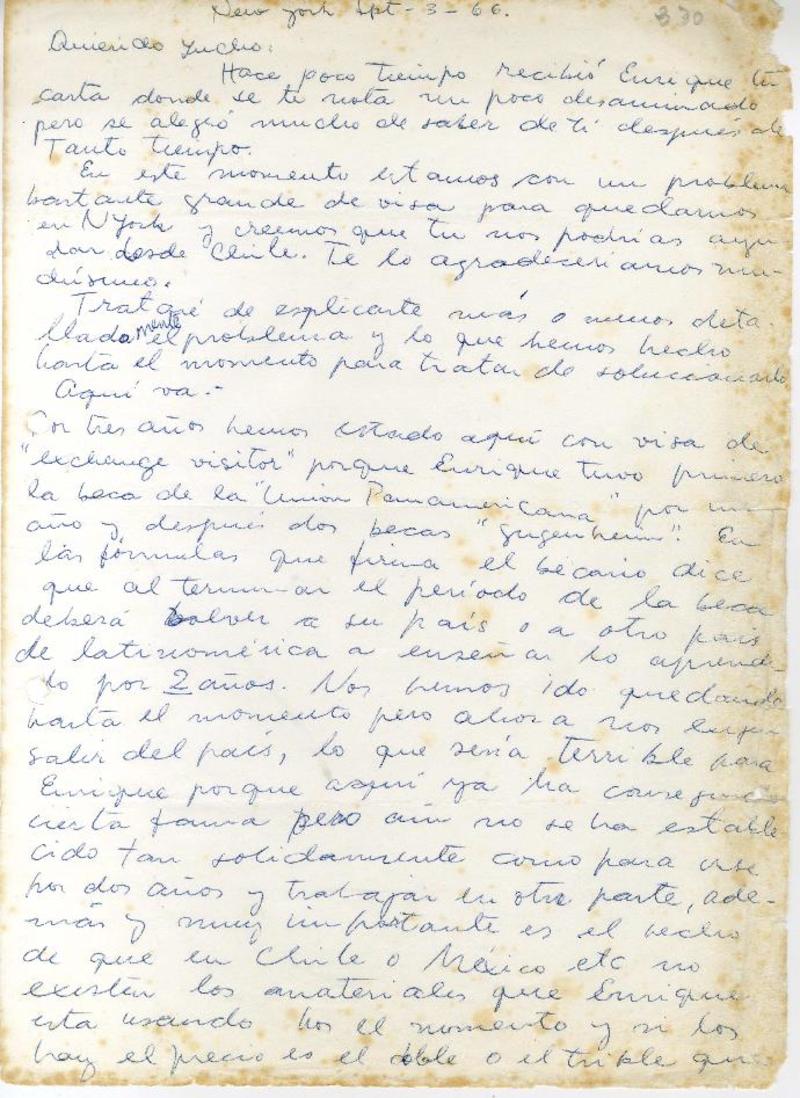 New York Spt-3-66.
330
Querido Lucho:
Hace poco tiempo recibió Enrique tu
carta donde se te nota un poco desanimado
pero se alegró mucho de saber de ti después de
Tanto tiempo.
En este momento estamos con un problema
bastante grande de visa para quedarnos
en NYork y creemos que tu nos podrías ayu-
dar desde Chile. Te lo agradeceriamos mu-
chísimo.
Trataré de esplicarte más o menos deta-
lladamente el problema y lo que hemos hecho
hasta el momento para tratar de solucionarlo
Aquí va.-
Por tres años hemos estado aquí con visa de
"exchange visitor" porque Enrique tuvo primero
la beca de la "Unión Panamericana" por un
año y después dos becas "gugenheim". En
las fórmulas que firma el becario dice
que al terminar el período de la beca
deberá bolver a su país o a otro país
de latinomérica a enseñar lo aprendi-
do por 2 años. Nos hemos ido quedando
hasta el momento pero ahora nos exigen
salir del país, lo que sería terrible para
Enrique porque aquí ya ha conseguido
cierta fama pero aún no se ha estable
cido tan solidamente como para irse
por dos años y trabajar en otra parte, ade-
más y muy importante es el hecho
de que en Chile o México etc no
existen los materiales que Enrique
esta usando el momento y si los
hay el precio es el doble o el trible que